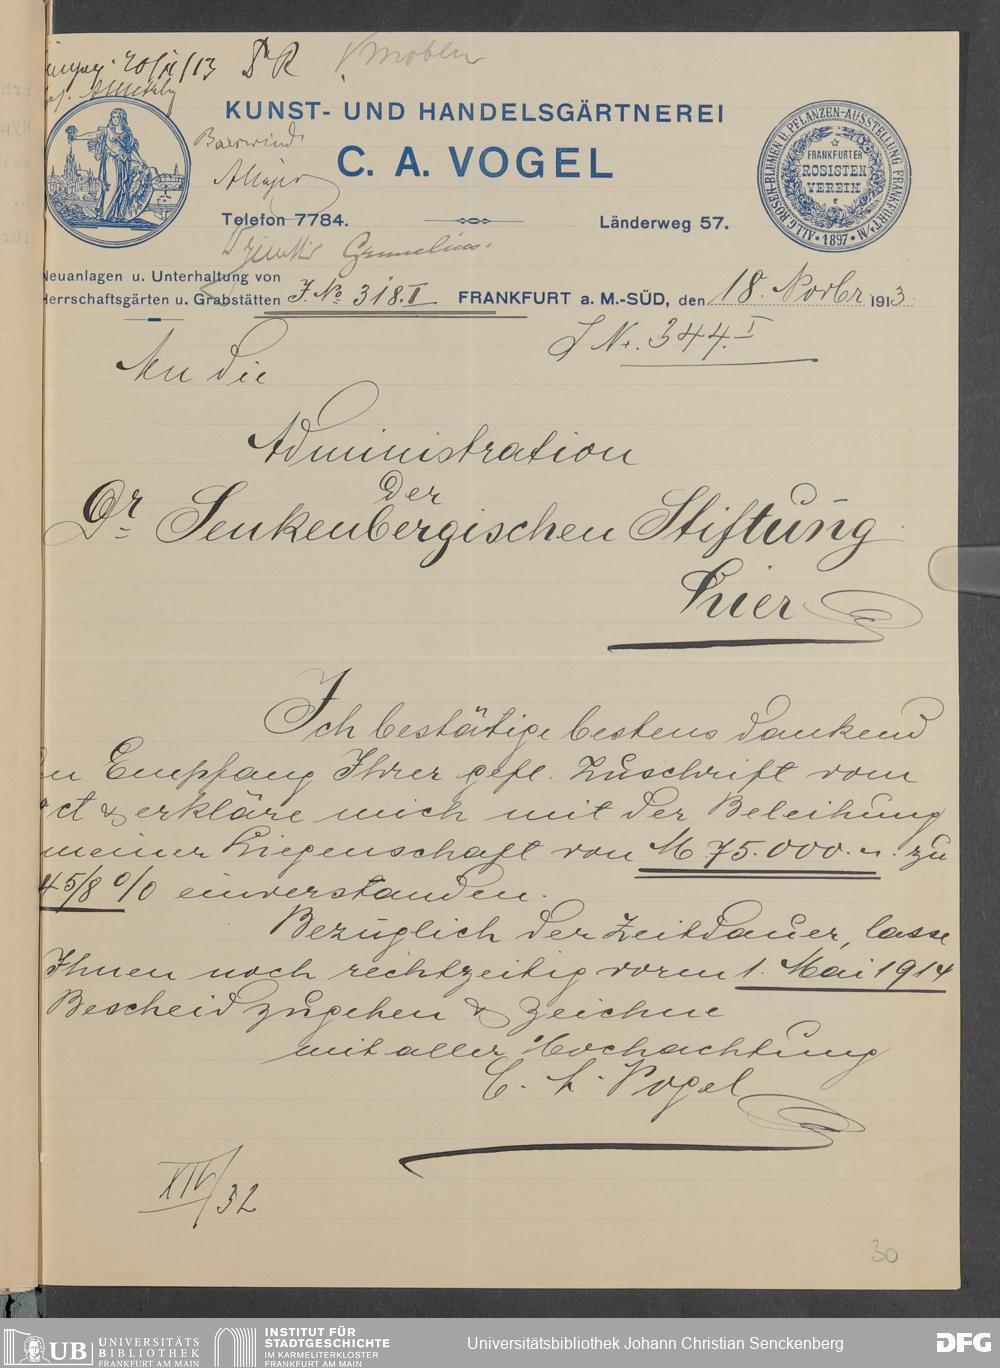 20/XI/13 Dr R
KUNST- UND HANDELSGÄRTNEREI
C. A. VOGEL
Telefon 7784.
Länderweg 57.
ALLG. ROSEN-BLUMEN U. PFLANZEN-AUSSTELLUNG FRANKFURT A/M
1897
FRANKFURTER
ROSISTEN
VEREIN
Neuanlagen u. Unterhaltung von
Herrschaftsgärten u. Grabstätten
J. No 318. II
FRANKFURT a. M.-SÜD, den 18. Novbr 1913.
J Nr. 344. I
An die
Administration
der
Dr Senkenbergischen Stiftung
hier
Ich bestätige bestens dankend
Empfang Ihrer gefl. Zuschrift vom
ct & erkläre mich mit der Beleihung
meiner Liegenschaft von M 75.000.- zu
4 5/8 % einverstanden.
Bezüglich der Zeitdauer, lasse
Ihnen noch rechtzeitig vorm 1. Mai 1914
Bescheid zugehen & zeichne
mit aller Hochachtung
C. A. Vogel
XIV/32
30
UB UNIVERSITÄTS
BIBLIOTHEK
FRANKFURT AM MAIN
INSTITUT FÜR
STADTGESCHICHTE
IM KARMELITERKLOSTER
FRANKFURT AM MAIN
Universitätsbibliothek Johann Christian Senckenberg
DFG